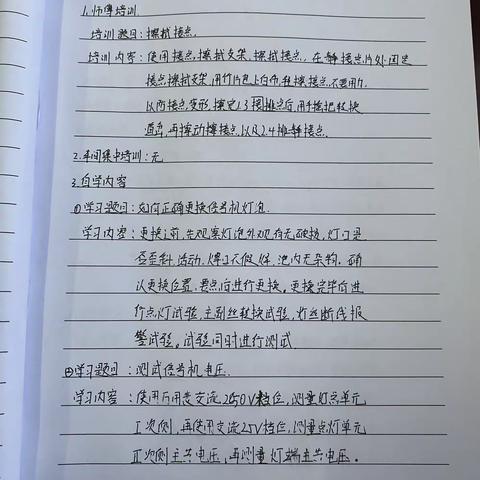 1.师傅培训
培训题目：擦拭接点.
培训内容：使用接点擦拭支架，擦拭接点，在静接点片处固定
接点擦拭支架，用竹片包上白布，轻擦接点，不要用力，
以防接点变形，擦完1.3排接点后，用手摇把转换
道岔，再擦动接点，以及2.4排静接点.
2.车间集中培训：无
3.自学内容
①学习题目：如何正确更换信号机灯泡.
学习内容：更换之前，先观察灯泡外观有无破损，灯口是
否歪斜、活动，焊口无假焊，泡内无杂物。确
认更换位置，要点后进行更换。更换完毕后进
行点灯试验，主副丝转换试验，灯丝断丝报
警试验。试验同时进行测试.
学习题目：测试信号机电压.
学习内容：使用万用表交流250V档位，测量点灯单元
I次侧，再使用交流25V档位，测量点灯单元
II次侧主共电压，再测量灯端主共电压。